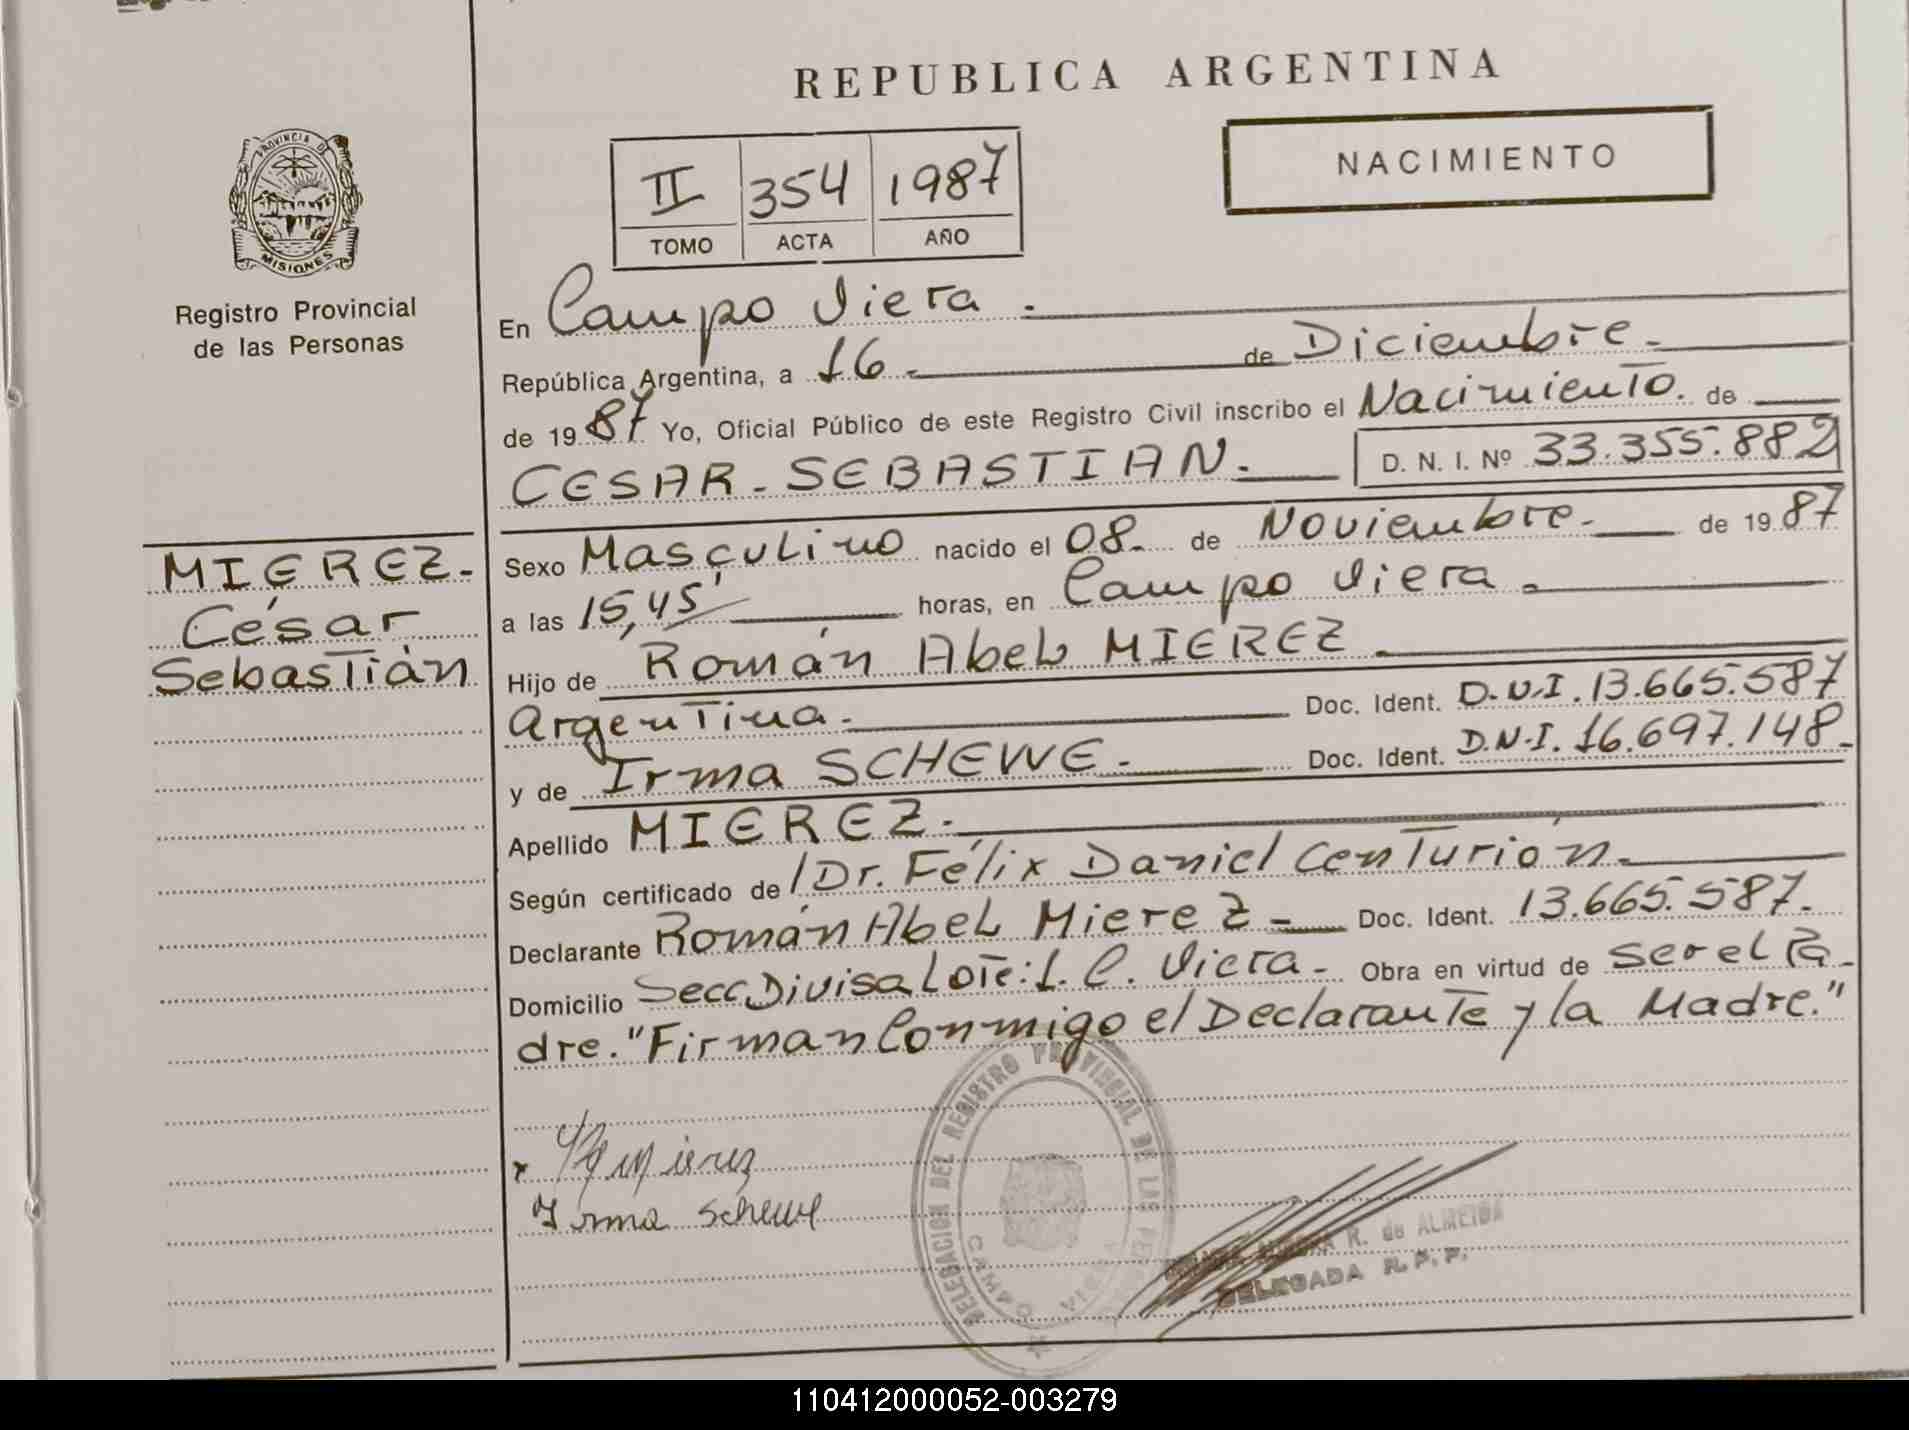 REPUBLICA ARGENTINA
NACIMIENTO
II 354 1987
TOMO ACTA AÑO
PROVINCIA DE
MISIONES
Registro Provincial
de las Personas
MIEREZ.
César
Sebastián
En Campo Viera.
República Argentina, a 16. de Diciembre.
de 1987. Yo, Oficial Público de este Registro Civil inscribo el Nacimiento. de
CESAR-SEBASTIAN. D. N. I. Nº 33.355.882
Sexo Masculino nacido el 08. de Noviembre. de 1987
a las 15,45' horas, en Campo Viera.
Hijo de Román Abel MIEREZ.
Argentina. Doc. Ident. D.N.I. 13.665.587
y de Irma SCHEWE. Doc. Ident. D.N.I. 16.697.148.
Apellido MIEREZ.
Según certificado de Dr. Félix Daniel Centurión.
Declarante Román Abel Mierez Doc. Ident. 13.665.587.
Domicilio Secc Divisa Lote:1. C. Viera. Obra en virtud de ser el Pa-
dre. "Firman Conmigo el Declarante y la Madre."
Mierez
Irma Schewe
DELEGACION DEL REGISTRO PROVINCIAL DE LAS
CAMPO VIERA
R. de ALMEIDA
DELEGADA R. P. P.
110412000052-003279